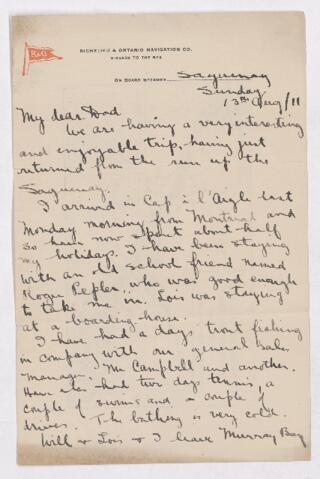 R&O
RICHELIEU & ONTARIO NAVIGATION CO.
NIAGARA TO THE SEA
ON BOARD STEAMER Saguenay
Sunday
13th Aug/11
My dear Dad
We are having a very interesting
and enjoyable trip, having just
returned from the run up the
Saguenay.
I arrived in Cap à l'Aigle last
Monday morning from Montreal and
so have now spent about half
my holidays. I have been staying
with an old school friend named
Roger Pepler who was good enough
to take me in. Lois was staying
at a boarding-house.
I have had a days trout fishing
in company with our general sales
manager. Mr Campbell and another.
Have also had two days tennis, a
couple of swims and a couple of
drives. The bathing is very cold.
Will & Lois & I leave Murray Bay